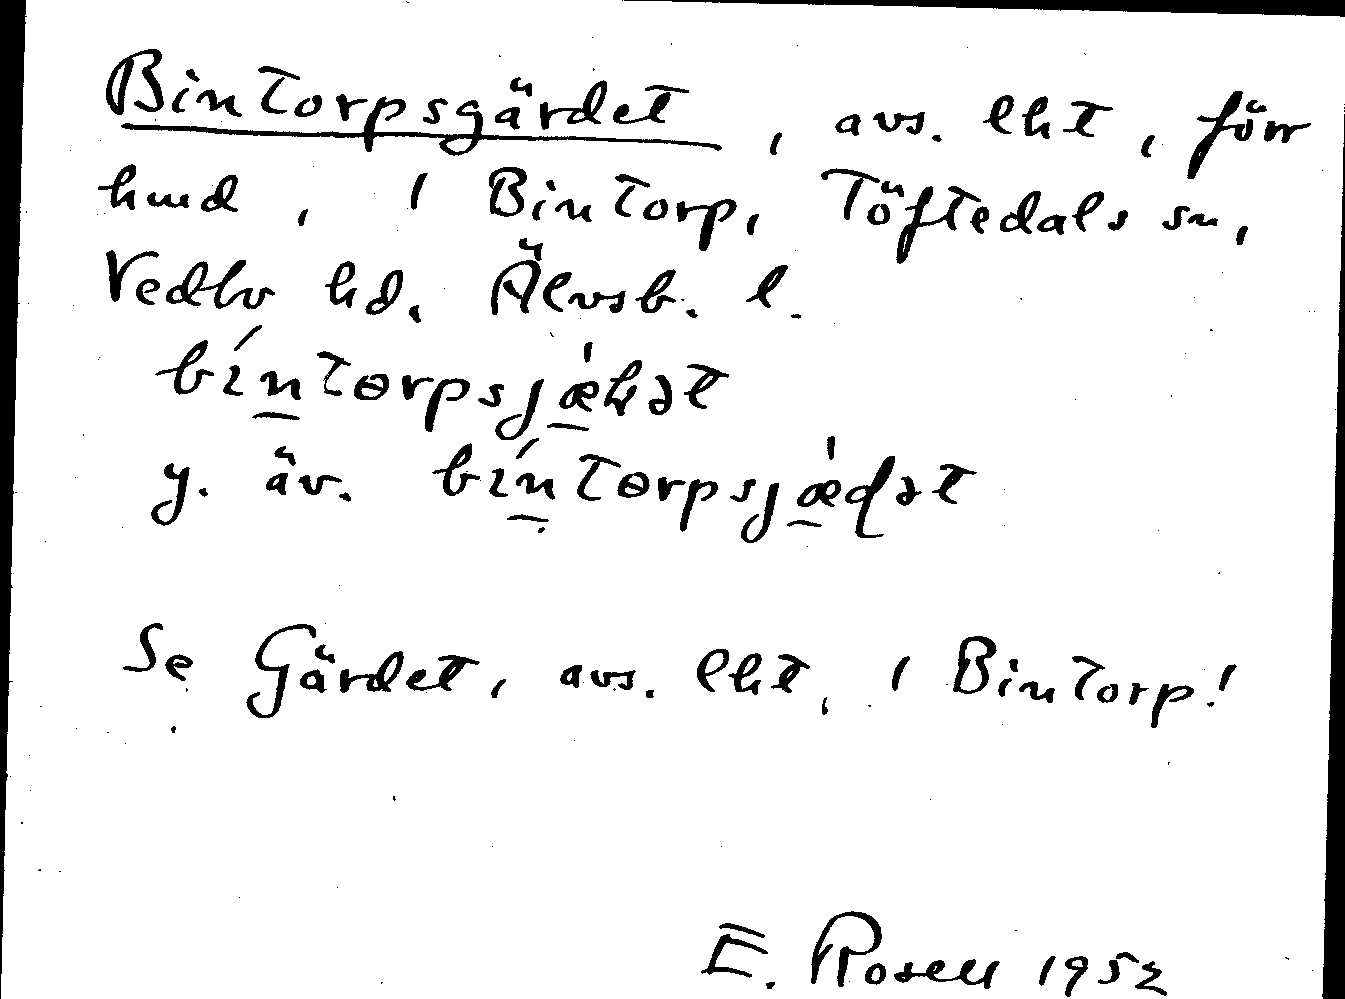 Bintorpsgärdet, avs. lht, förr
hmd, i Bintorp, Töftedals sn,
Vedbo hd. Älvsb. l.
bíntɵrpsjæ̀ɽət
y. äv. bíntɵrpsjæ̀ḍət
Se Gärdet, avs. lht, i Bintorp!
E. Rosell 1952